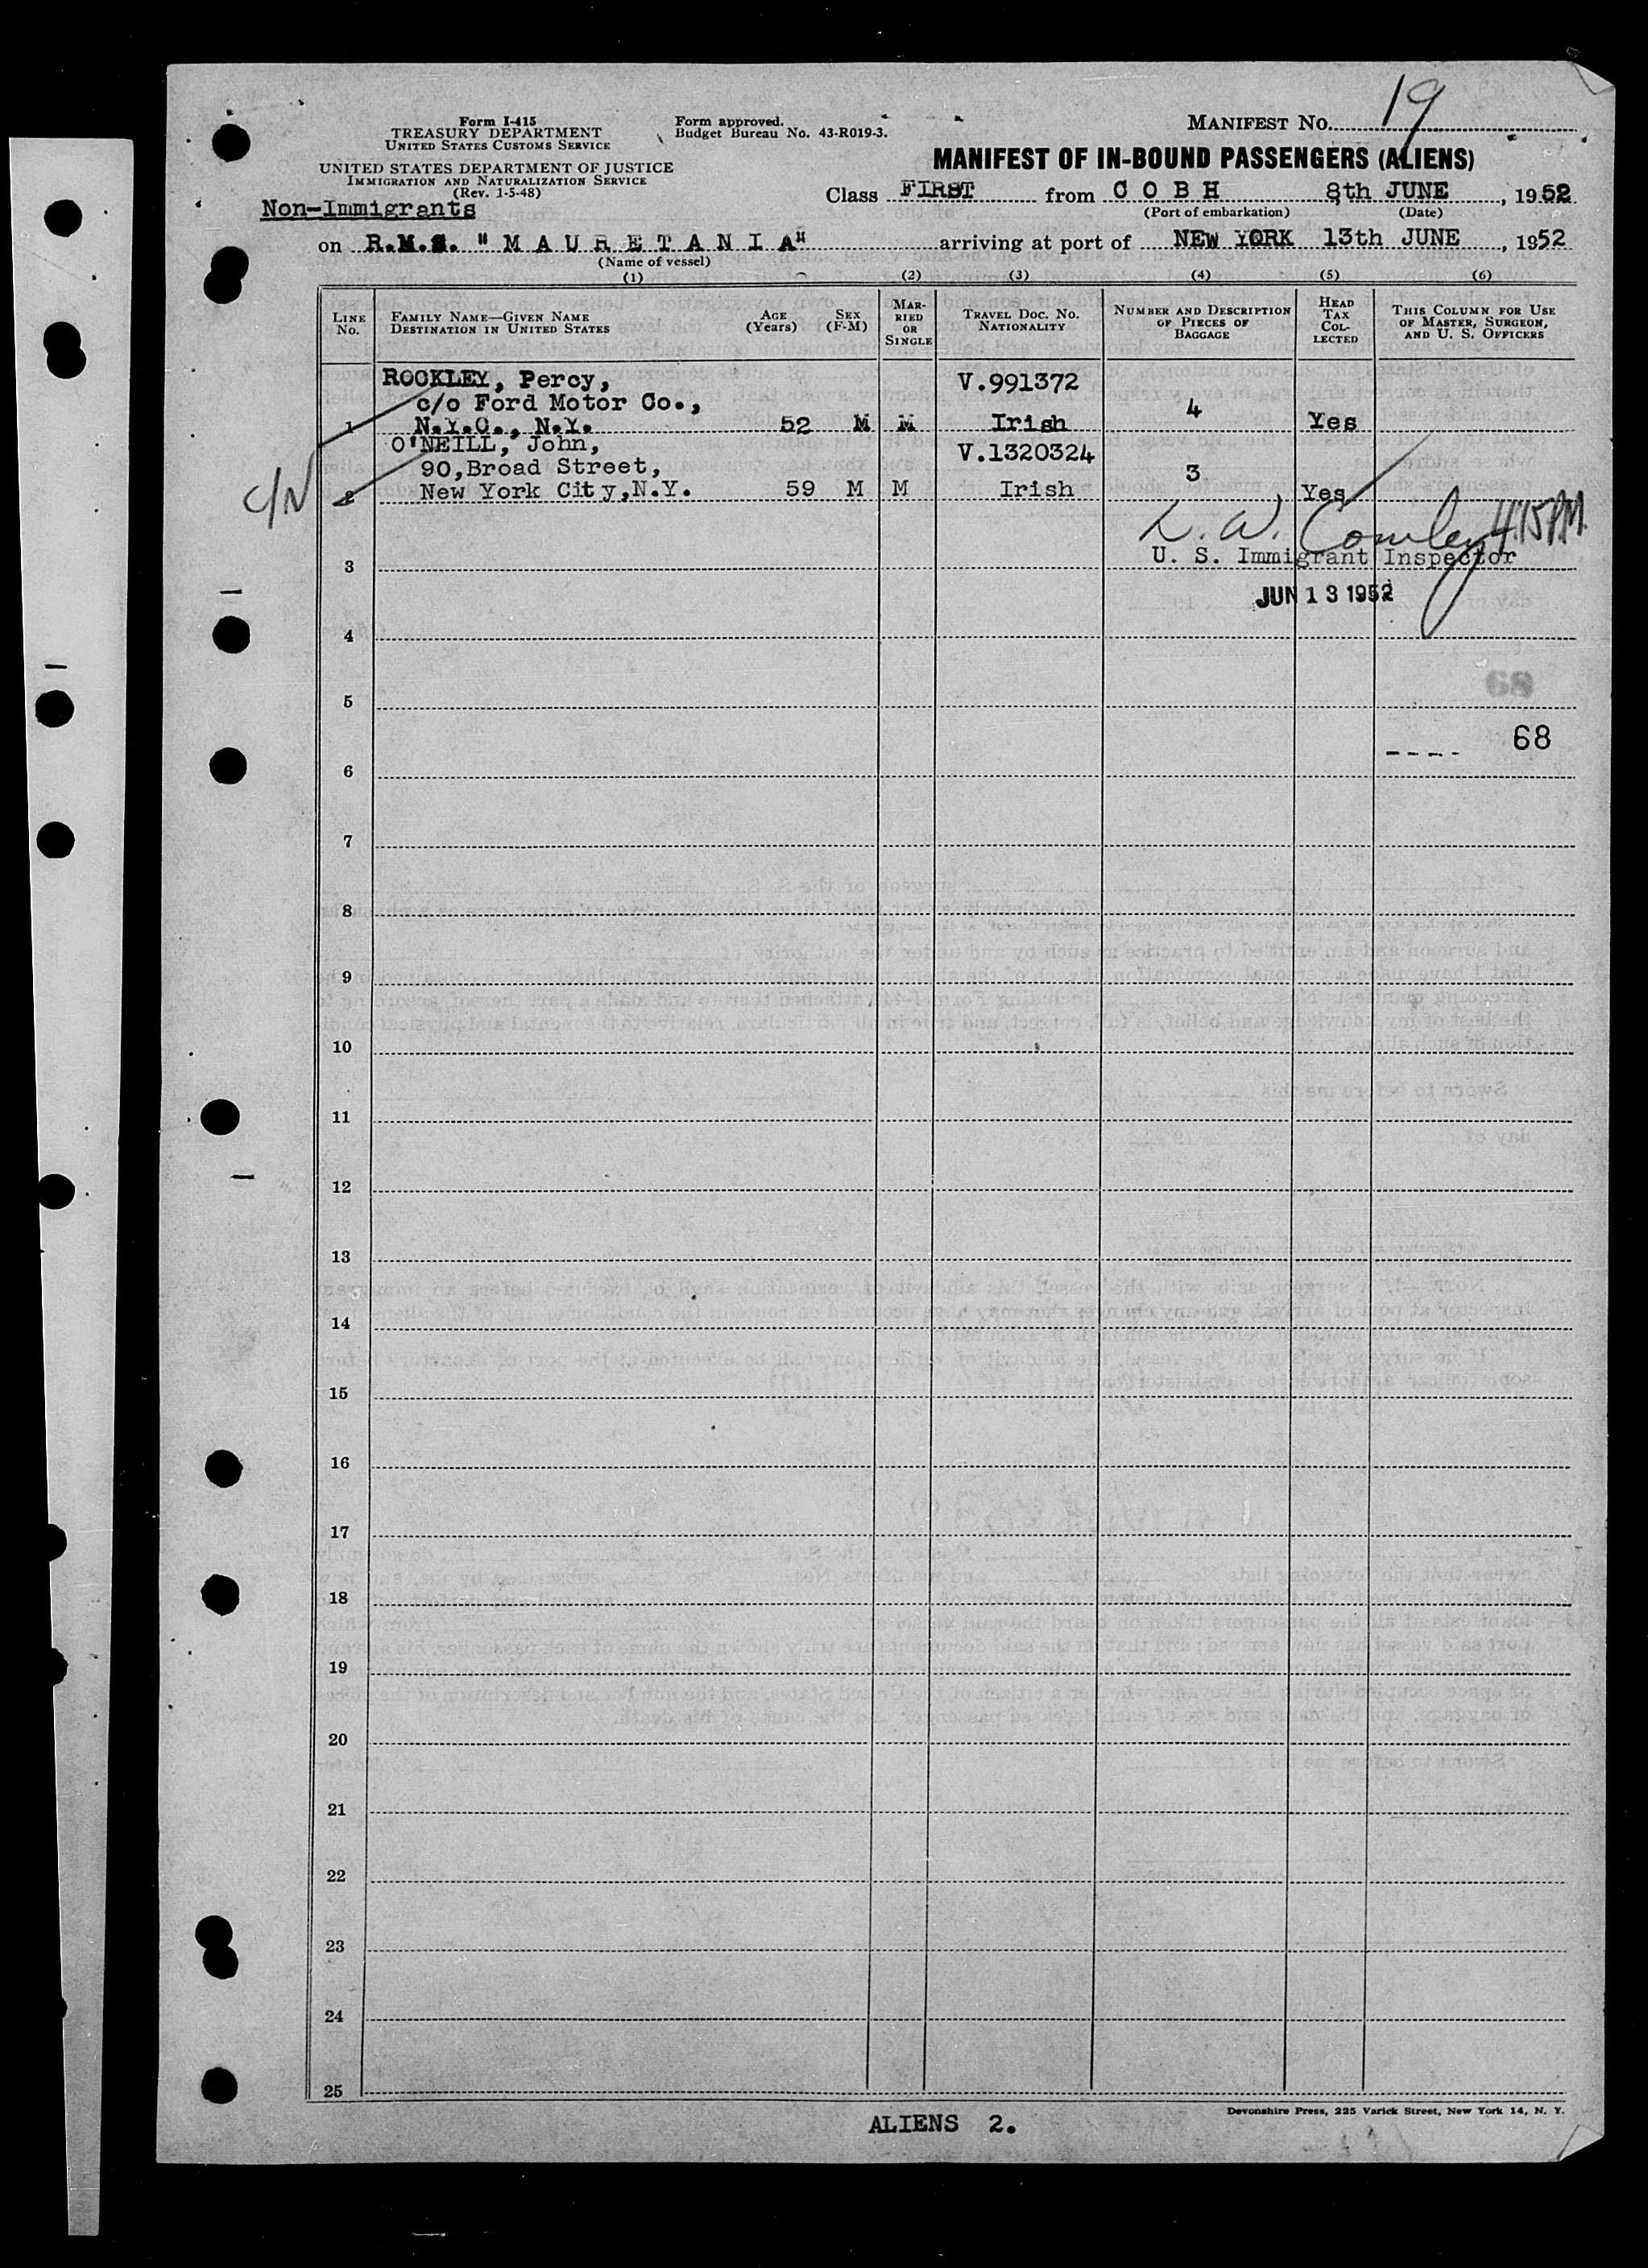 19
Form I-415
TREASURY DEPARTMENT
UNITED STATES CUSTOMS SERVICE
Form approved.
Budget Bureau No. 43-R019-3.
MANIFEST NO.
UNITED STATES DEPARTMENT OF JUSTICE
IMMIGRATION AND NATURALIZATION SERVICE
(Rev. 1-5-48)
MANIFEST OF IN-BOUND PASSENGERS (ALIENS)
Non-Immigrants
Class FIRST from C O B H 8th JUNE, 1952
(Port of embarkation) (Date)
on R.M.S. "M A U R E T A N I A" arriving at port of NEW YORK 13th JUNE, 1952
(Name of vessel)
(1) (2) (3) (4) (5) (6)
LINE NO.
FAMILY NAME—GIVEN NAME
DESTINATION IN UNITED STATES
AGE (Years)
SEX (F-M)
MARRIED OR SINGLE
TRAVEL DOC. NO.
NATIONALITY
NUMBER AND DESCRIPTION OF PIECES OF BAGGAGE
HEAD TAX COLLECTED
THIS COLUMN FOR USE OF MASTER, SURGEON, AND U. S. OFFICERS
ROCKLEY, Percy, V.991372
c/o Ford Motor Co., 4
1 N.Y.C., N.Y. 52 M M Irish Yes
O'NEILL, John, V.1320324
90,Broad Street, 3
C/N 2 New York City,N.Y. 59 M M Irish Yes
L. W. Cowley 4:15 P.M.
U. S. Immigrant Inspector
3
JUN 13 1952
4
68
5
---- 68
6
7
8
9
10
11
12
13
14
15
16
17
18
19
20
21
22
23
24
25
Devonshire Press, 225 Varick Street, New York 14, N. Y.
ALIENS 2.